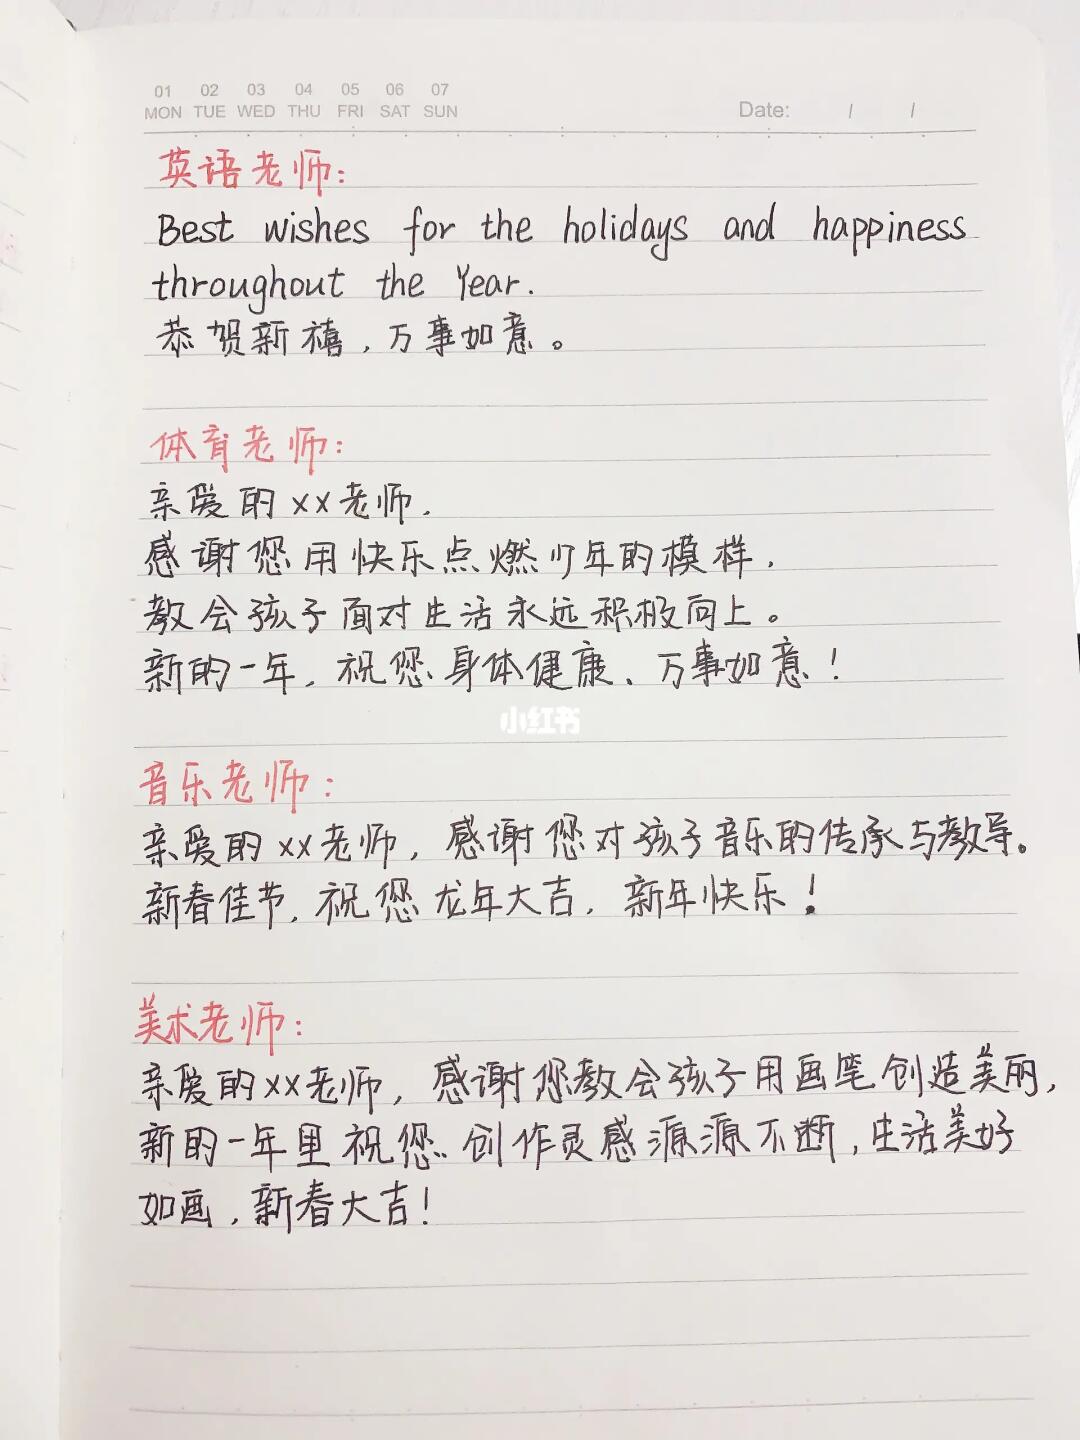 01 02 03 04 05 06 07
MON TUE WED THU FRI SAT SUN
Date: / /
英语老师:
Best wishes for the holidays and happiness
throughout the Year.
恭贺新禧,万事如意。
体育老师:
亲爱的xx老师,
感谢您用快乐点燃少年的模样,
教会孩子面对生活永远积极向上。
新的一年,祝您身体健康、万事如意!
小红书
音乐老师:
亲爱的xx老师,感谢您对孩子音乐的传承与教导。
新春佳节,祝您龙年大吉,新年快乐!
美术老师:
亲爱的xx老师,感谢您教会孩子用画笔创造美丽,
新的一年里祝您创作灵感源源不断,生活美好
如画,新春大吉!